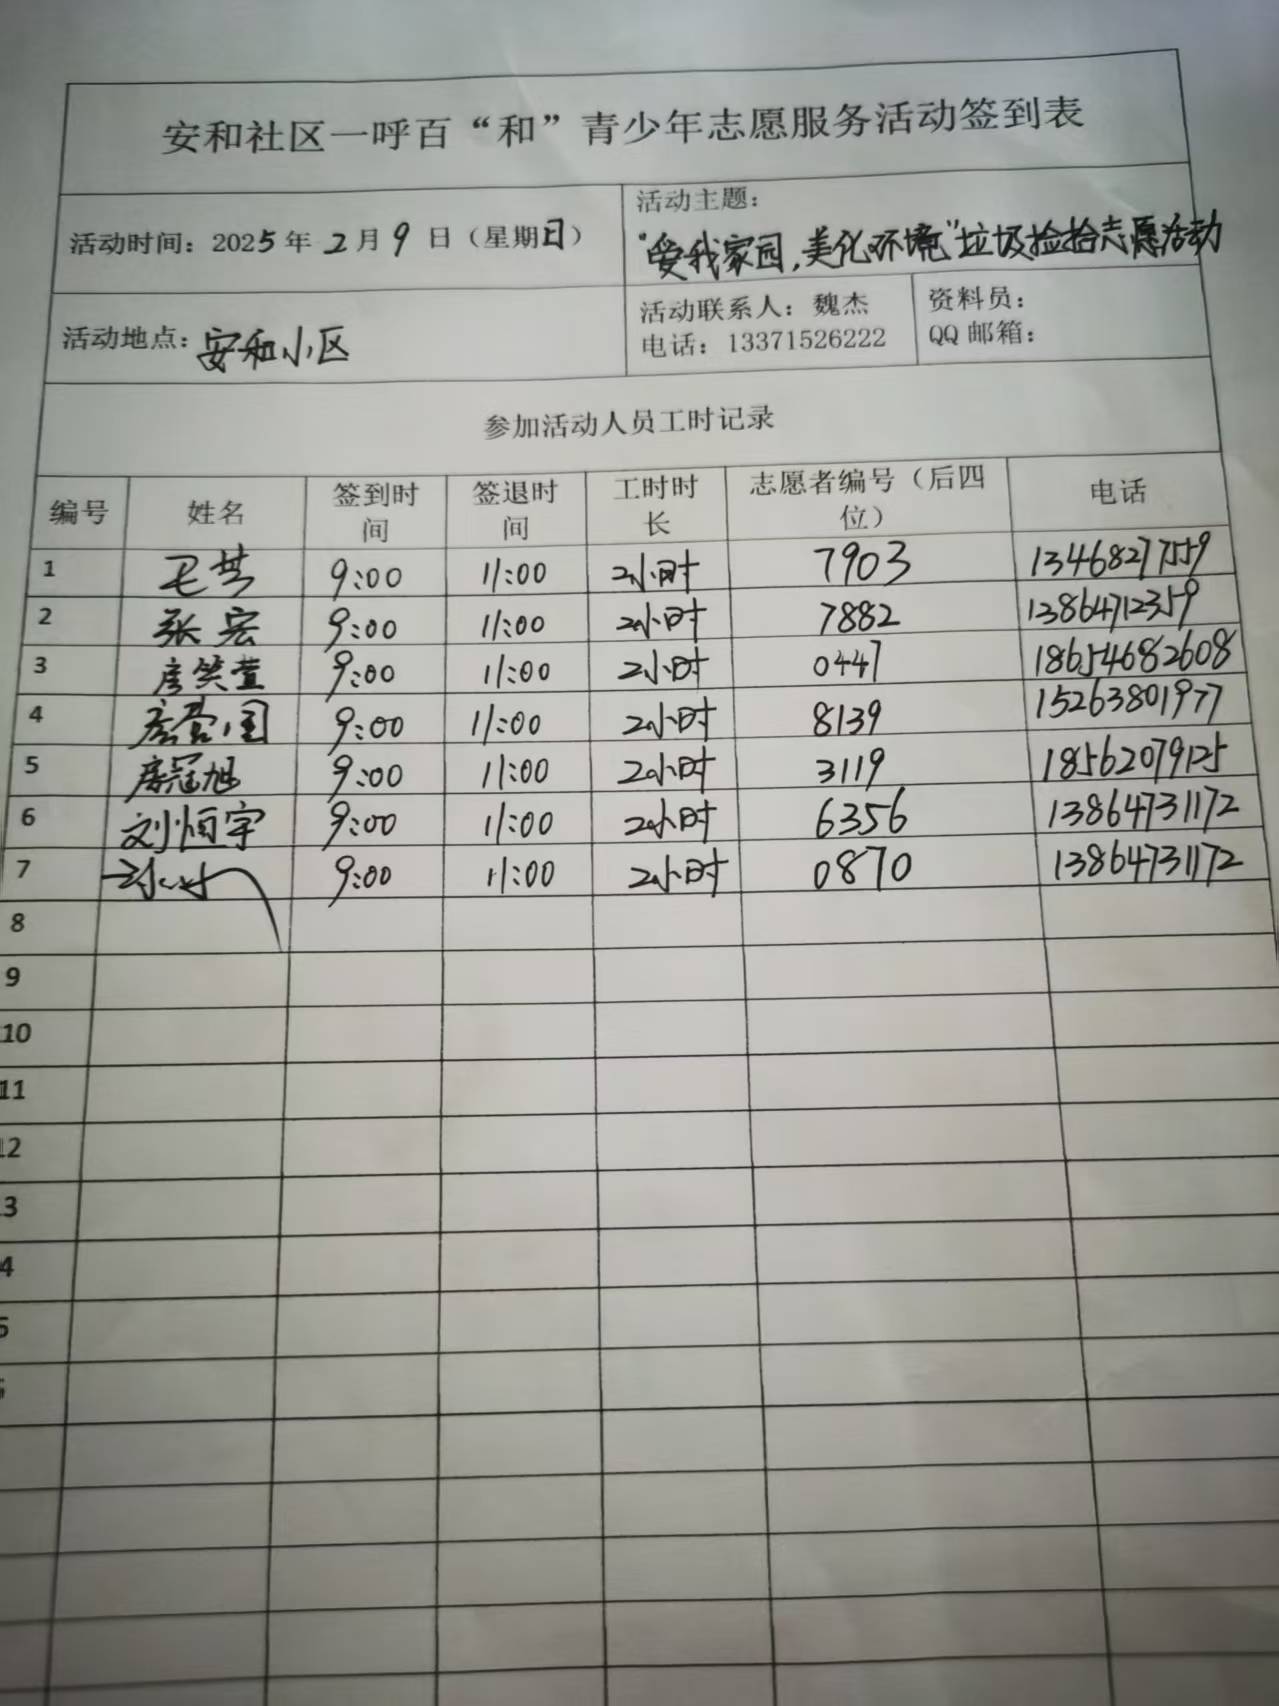 安和社区一呼百“和”青少年志愿服务活动签到表
活动时间：2025年2月9日（星期日）
活动主题：
“爱我家园，美化环境”垃圾捡拾志愿活动
活动地点：安和小区
活动联系人：魏杰
电话：13371526222
资料员：
QQ邮箱：
参加活动人员工时记录
编号 姓名 签到时间 签退时间 工时时长 志愿者编号（后四位） 电话
1 9:00 11:00 2小时 7903 13468277559
2 张宏 9:00 11:00 2小时 7882 13864712359
3 房笑萱 9:00 11:00 2小时 0447 18654682608
4 9:00 11:00 2小时 8139 15263801977
5 房冠旭 9:00 11:00 2小时 3119 18562079125
6 刘恒宇 9:00 11:00 2小时 6356 13864731172
7 9:00 11:00 2小时 0870 13864731172
8
9
10
11
12
3
4
5